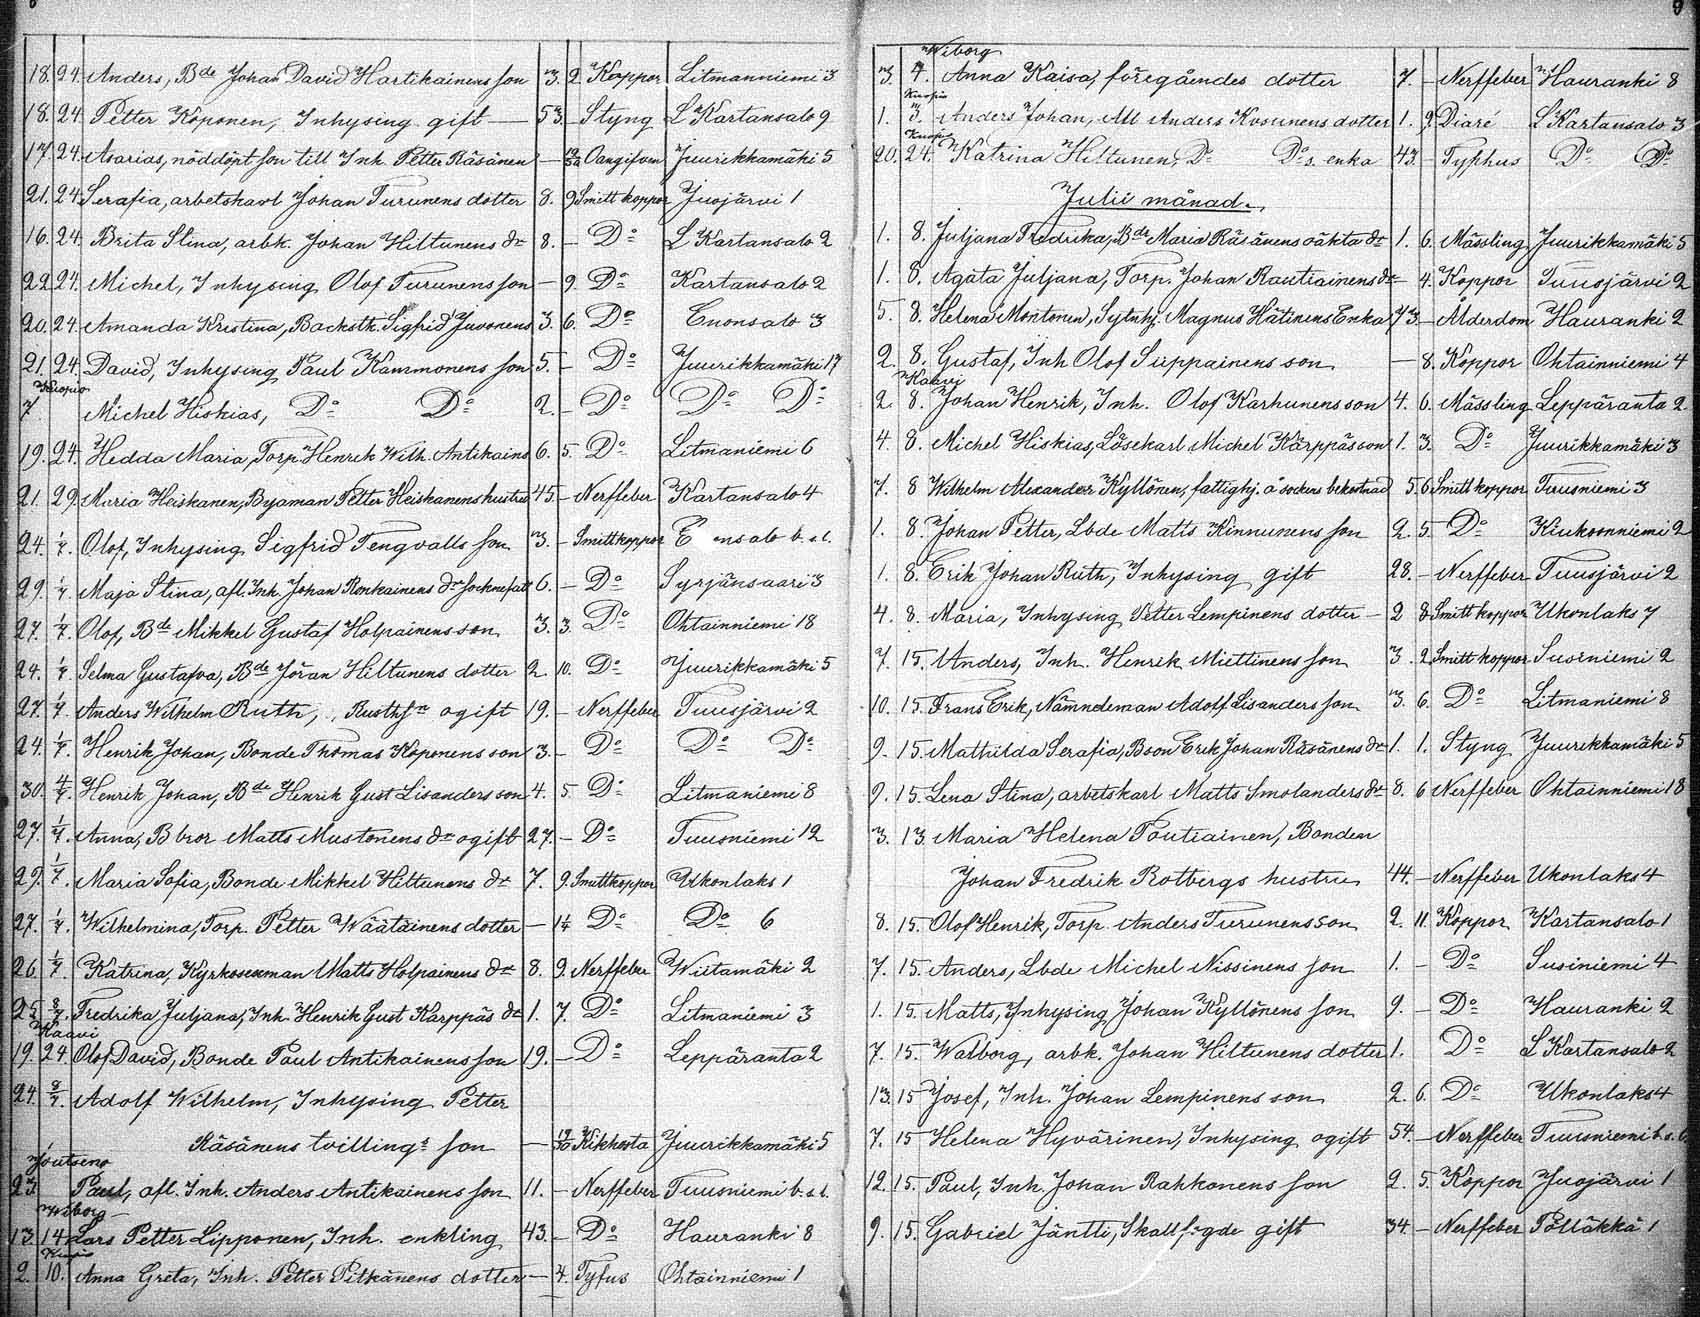 8
18. 24. Anders, Bde Johan David Hartikainens son 3. 2. Koppor Litmanniemi 3
18. 24. Petter Koponen, Inhysing gift — 53. – Styng L Kartansalo 9
17. 24. Asarias, nöddöpt son till Inh. Petter Räsänen — Oangifven Juurikkamäki 5
21. 24. Serafia, arbetskarl Johan Turunens dotter 8. 9 Smittkoppor Juojärvi 1
16. 24. Brita Stina, arbk. Johan Hiltunens dr 8. – Do L Kartansalo 2
22 24. Michel, Inhysing Olof Turunens son – 9. Do Kartansalo 2
20. 24. Amanda Kristina, Backstk. Sigfrid Juvonens 3. 6. Do Enonsalo 3
21. 24. David, Inhysing Paul Kammonens son 5. – Do Juurikkamäki 17
Kuopio
7. Michel Hiskias, Do Do 2. – Do Do Do
19. 24. Hedda Maria, Torp Henrik Wilh. Antikains 6. 5. Do Litmaniemi 6
21. 29. Maria Heiskanen, Byaman Petter Heiskanens hustru 45. – Nerffeber Kartansalo 4
24. 1/7. Olof, Inhysing Sigfrid Tengvalls son 3. – Smittkoppor E nsalo b.s.l.
29. 1/7. Maja Stina, afl. Inh. Johan Ronkainens dr socknefatt 6. – Do Syrjänsaari 3
27. 1/7. Olof, Bde Mikkel Gustaf Holpainens son 3. 3. Do Ohtainniemi 18
24. 1/7. Selma Gustafva, Bde Jöran Hiltunens dotter 2 10. Do Juurikkamäki 5
27. 1/7. Anders Wilhelm Ruth, ogift 19. – Nerffeber Tuusjärvi 2
24. 1/7. Henrik Johan, Bonde Thomas Koponens son 3. – Do Do Do
30. 4/7. Henrik Johan, Bde Henrik Gust Lisanders son 4. 5. Do Litmaniemi 8
27. 1/7. Anna, B bror Matts Mustonens dr ogift 27. – Do Tuusniemi 12
29. 1/7. Maria Sofia, Bonde Mikkel Hiltunens dr 7. 9. Smittkoppor Ukonlaks 1
27. 1/7. Wilhelmina, Torp. Petter Wäätäinens dotter – Do Do 6
26. 1/7. Katrina, Kyrkosexman Matts Holpainens dr 8. 9. Nerffeber Wiitamäki 2
25. 8/7. Fredrika Juljana, Inh. Henrik Gust Karppäs dr 1. 7. Do Litmaniemi 3
Kaavi
19. 24. Olof David, Bonde Paul Antikainens son 19. – Do Leppäranta 2
24. 8/7. Adolf Wilhelm, Inhysing Petter
Räsänens tvillings son – Kikhosta Juurikkamäki 5
Joutseno
23. Paul, afl. Inh. Anders Antikainens son 11. – Nerffeber Tuusniemi b.s.l.
Wiborg
13. 14. Lars Petter Lipponen, Inh. enkling 43. – Do Hauranki 8
Kuopio
2. 10. Anna Greta, Inh. Petter Pitkänens dotter – 4. Tyfus Ohtainniemi 1
9
Wiborg
3. 4. Anna Kaisa, föregåendes dotter 7. – Nerffeber Hauranki 8
Kuopio
1. 3. Anders Johan, Anders Kosunens dotter 1. 9. Diaré L Kartansalo 3
Kuopio
20. 24. Katrina Hiltunen, Do Do s. enka 43. – Typhus Do Do
Julii månad.
1. 8. Juljana Fredrika, Bde Maria Räsänens oäkta dr 1. 6. Mässling Juurikkamäki 5
1. 8. Agata Juljana, Torp. Johan Rautiainens dr – 4. Koppor Tuusjärvi 2
5. 8. Helena Montonen, Sytnhj. Magnus Hätinens Enka 73. – Ålderdom Hauranki 2
2. 8. Gustaf, Inh Olof Suppainens son – 8. Koppor Ohtainniemi 4
Kaavi
2. 8. Johan Henrik, Inh. Olof Karhunens son 4. 6. Mässling Leppäranta 2.
4. 8. Michel Hiskias, Lösekarl Michel Kärppäs son 1. 3. Do Juurikkamäki 3
7. 8 Wilhelm Alexander Kyllönen, fattighj. å sockens bekostnad 5. 6 Smittkoppor Tuusniemi 3
1. 8. Johan Petter, Lbde Matts Kinnunens son 2. 5. Do Kiukoonniemi 2
1. 8. Erik Johan Ruth, Inhysing gift 28. – Nerffeber Tuusjärvi 2
4. 8. Maria, Inhysing Petter Lempinens dotter – 2 8 Smittkoppor Ukonlaks 7
7. 15. Anders, Inh. Henrik Miettinens son 3. 2. Smittkoppor Susiniemi 2
10. 15. Frans Erik, Nämndeman Adolf Lisanders son 3. 6. Do Litmaniemi 8
9. 15. Mathilda Serafia, Bson Erik Johan Räsänens dr 1. 1. Styng Juurikkamäki 5
9. 15. Lena Stina, arbetskarl Matts Smolanders dr 8. 6 Nerffeber Ohtainniemi 18
3. 13. Maria Helena Poutiainen, Bonden
Johan Fredrik Botbergs hustru 44. – Nerffeber Ukonlaks 4
8. 15. Olof Henrik, Torp. Anders Turunens son 2. 11. Koppor Kartansalo 1
7. 15. Anders, Lbde Michel Nissinens son 1. – Do Susiniemi 4
1. 15. Matts, Inhysing Johan Kyllönens son 9. – Do Hauranki 2
7. 15. Walborg, arbk. Johan Hiltunens dotter 1. Do L Kartansalo 2
13. 15 Josef, Inh. Johan Lempinens son 2. 6. Do Ukonlaks 4
7. 15 Helena Hyvärinen, Inhysing ogift 54. – Nerffeber Tuusniemi b.s.l.
12. 15. Paul, Inh. Johan Rahkonens son 2. 5. Koppor Juojärvi 1
9. 15. Gabriel Jäntti, gift 34. – Nerffeber Pölläkkä 1